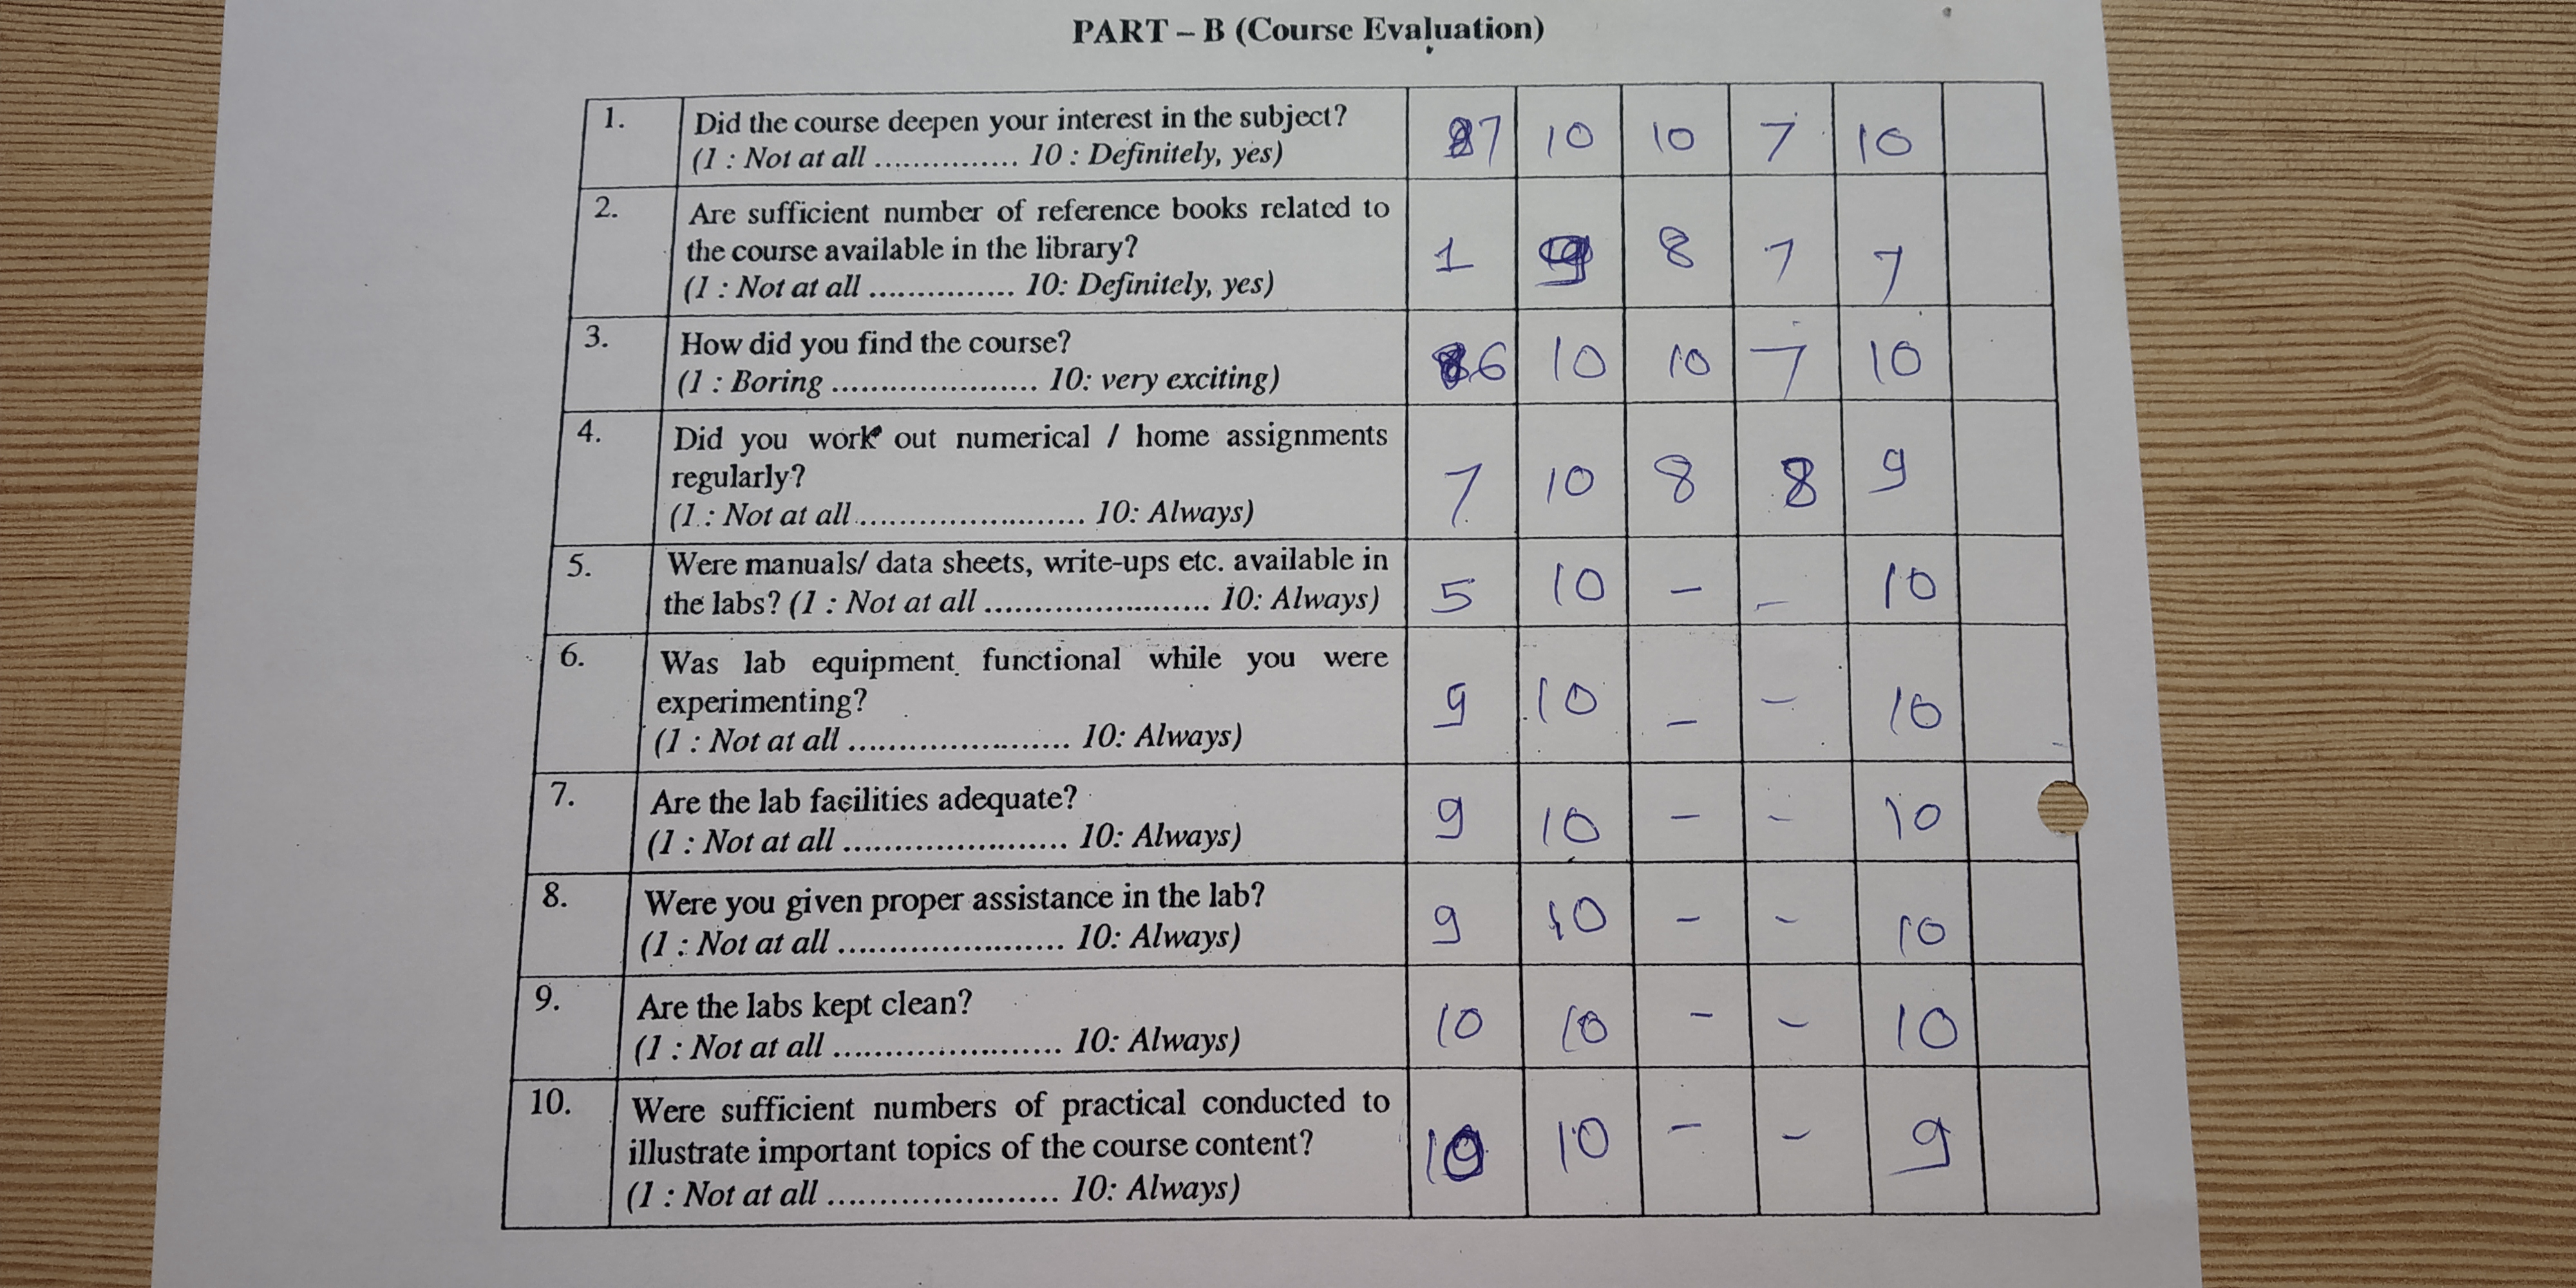 PART – B (Course Evaluation)
1. Did the course deepen your interest in the subject? 7 10 10 7 10
(1 : Not at all ............... 10 : Definitely, yes)
2. Are sufficient number of reference books related to
the course available in the library? 1 9 8 7 7
(1 : Not at all ............... 10: Definitely, yes)
3. How did you find the course? 6 10 10 7 10
(1 : Boring ..................... 10: very exciting)
4. Did you work out numerical / home assignments
regularly? 7 10 8 8 9
(1 : Not at all ....................... 10: Always)
5. Were manuals/ data sheets, write-ups etc. available in
the labs? (1 : Not at all ....................... 10: Always) 5 10 – – 10
6. Was lab equipment functional while you were
experimenting? 9 10 – – 10
(1 : Not at all ....................... 10: Always)
7. Are the lab facilities adequate? 9 10 – – 10
(1 : Not at all ....................... 10: Always)
8. Were you given proper assistance in the lab? 9 10 – – 10
(1 : Not at all ....................... 10: Always)
9. Are the labs kept clean? 10 10 – – 10
(1 : Not at all ....................... 10: Always)
10. Were sufficient numbers of practical conducted to
illustrate important topics of the course content? 10 10 – – 9
(1 : Not at all ....................... 10: Always)